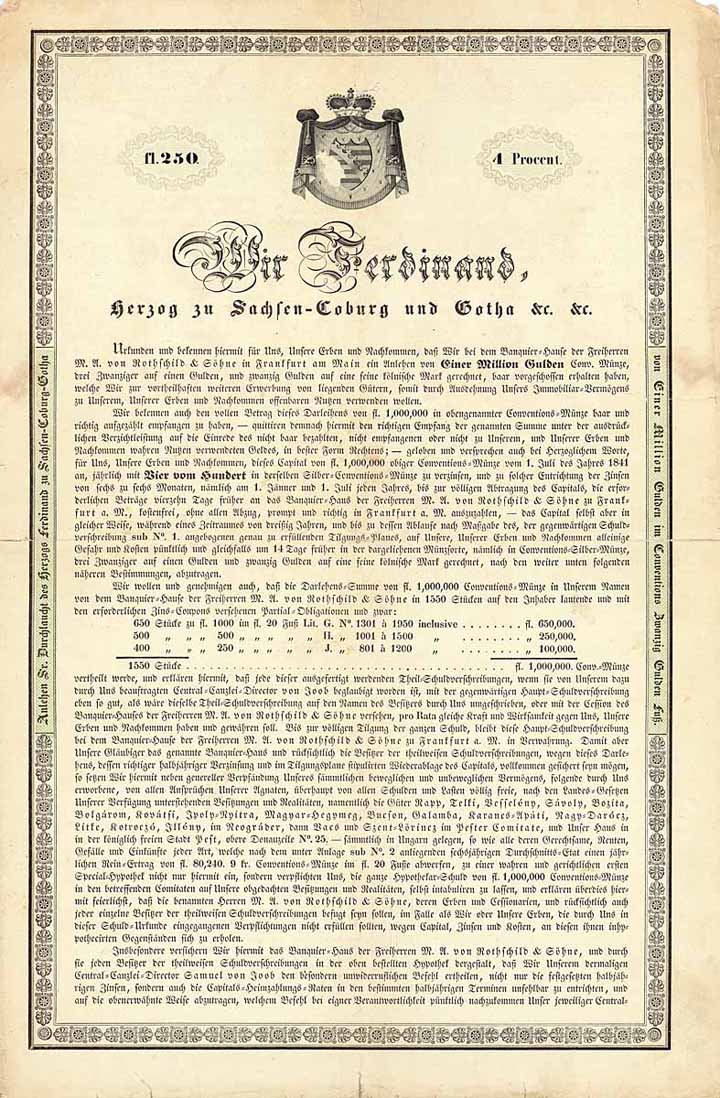 fl. 250.
4 Procent.
Wir Ferdinand,
Herzog zu Sachsen-Coburg und Gotha &c. &c.
Urkunden und bekennen hiermit für Uns, Unsere Erben und Nachkommen, daß Wir bei dem Banquier-Hause der Freiherren
M. A. von Rothschild & Söhne in Frankfurt am Main ein Anlehen von Einer Million Gulden Conv. Münze,
drei Zwanziger auf einen Gulden, und zwanzig Gulden auf eine feine kölnische Mark gerechnet, baar vorgeschossen erhalten haben,
welche Wir zur vortheilhaften weiteren Erwerbung von liegenden Gütern, somit durch Ausdehnung Unsers Immobiliar-Vermögens
zu Unserem, Unserer Erben und Nachkommen offenbaren Nutzen verwenden wollen.
Wir bekennen auch den vollen Betrag dieses Darleihens von fl. 1,000,000 in obengenannter Conventions-Münze baar und
richtig aufgezählt empfangen zu haben, — quittiren demnach hiermit den richtigen Empfang der genannten Summe unter der ausdrück-
lichen Verzichtleistung auf die Einrede des nicht baar bezahlten, nicht empfangenen oder nicht zu Unserem, und Unserer Erben und
Nachkommen wahren Nutzen verwendeten Geldes, in bester Form Rechtens; — geloben und versprechen auch bei Herzoglichem Worte,
für Uns, Unsere Erben und Nachkommen, dieses Capital von fl. 1,000,000 obiger Conventions-Münze vom 1. Juli des Jahres 1841
an, jährlich mit Vier vom Hundert in derselben Silber-Conventions-Münze zu verzinsen, und zu solcher Entrichtung der Zinsen
von sechs zu sechs Monaten, nämlich am 1. Jänner und 1. Juli jeden Jahres, bis zur völligen Abtragung des Capitals, die erfor-
derlichen Beträge vierzehn Tage früher an das Banquier-Haus der Freiherren M. A. von Rothschild & Söhne zu Frank-
furt a. M., kostenfrei, ohne allen Abzug, prompt und richtig in Frankfurt a. M. auszuzahlen, — das Capital selbst aber in
gleicher Weise, während eines Zeitraumes von dreißig Jahren, und bis zu dessen Ablaufe nach Maßgabe des, der gegenwärtigen Schuld-
verschreibung sub No. 1. angebogenen genau zu erfüllenden Tilgungs-Planes, auf Unsere, Unserer Erben und Nachkommen alleinige
Gefahr und Kosten pünktlich und gleichfalls um 14 Tage früher in der dargeliehenen Münzsorte, nämlich in Conventions-Silber-Münze,
drei Zwanziger auf einen Gulden und zwanzig Gulden auf eine feine kölnische Mark gerechnet, nach den weiter unten folgenden
näheren Bestimmungen, abzutragen.
Wir wollen und genehmigen auch, daß die Darlehens-Summe von fl. 1,000,000 Conventions-Münze in Unserem Namen
von dem Banquier-Hause der Freiherren M. A. von Rothschild & Söhne in 1550 Stücken auf den Inhaber lautende und mit
den erforderlichen Zins-Coupons versehenen Partial-Obligationen und zwar:
650 Stücke zu fl. 1000 im fl. 20 Fuß Lit. G. No. 1301 à 1950 inclusive . . . . . . . . fl. 650,000.
500 „ „ „ 500 „ „ „ „ H. „ 1001 à 1500 „ . . . . . . . . „ 250,000.
400 „ „ „ 250 „ „ „ „ J. „ 801 à 1200 „ . . . . . . . . „ 100,000.
1550 Stücke . . . . . . . . . . . . . . . . . . . . . . . . . . . . . . . . fl. 1,000,000. Conv.-Münze
vertheilt werde, und erklären hiermit, daß jede dieser ausgefertigt werdenden Theil-Schuldverschreibungen, wenn sie von Unserem dazu
durch Uns beauftragten Central-Canzlei-Director von Joob beglaubigt worden ist, mit der gegenwärtigen Haupt-Schuldverschreibung
eben so gut, als wäre dieselbe Theil-Schuldverschreibung auf den Namen des Besitzers durch Uns umgeschrieben, oder mit der Cession des
Banquier-Hauses der Freiherren M. A. von Rothschild & Söhne versehen, pro Rata gleiche Kraft und Wirksamkeit gegen Uns, Unsere
Erben und Nachkommen haben und gewähren soll. Bis zur völligen Tilgung der ganzen Schuld, bleibt diese Haupt-Schuldverschreibung
bei dem Banquier-Hause der Freiherren M. A. von Rothschild & Söhne zu Frankfurt a. M. in Verwahrung. Damit aber
Unsere Gläubiger das genannte Banquier-Haus und rücksichtlich die Besitzer der theilweisen Schuldverschreibungen, wegen dieses Darle-
hens, dessen richtiger halbjähriger Verzinsung und im Tilgungsplane stipulirten Wiederablage des Capitals, vollkommen gesichert seyn mögen,
so setzen Wir hiermit neben genereller Verpfändung Unseres sämmtlichen beweglichen und unbeweglichen Vermögens, folgende durch Uns
erworbene, von allen Ansprüchen Unserer Agnaten, überhaupt von allen Schulden und Lasten völlig freie, nach den Landes-Gesetzen
Unserer Verfügung unterstehenden Besitzungen und Realitäten, namentlich die Güter Rapp, Telki, Vesselény, Sávoly, Bozita,
Bolgárom, Kovátsi, Ipoly-Nyitra, Magyar-Hegymeg, Bucson, Galamba, Karancs-Apáti, Nagy-Darócz,
Litke, Kotroczó, Illény, im Neográder, dann Vacs und Szent-Lörincz im Pester Comitate, und Unser Haus in
in der königlich freien Stadt Pest, obere Donauzeile No. 25. — sämmtlich in Ungarn gelegen, so wie alle deren Gerechtsame, Renten,
Gefälle und Einkünfte jeder Art, welche nach dem unter Anlage sub No. 2 anliegenden sechsjährigen Durchschnitts-Etat einen jähr-
lichen Rein-Ertrag von fl. 80,240. 9 kr. Conventions-Münze im fl. 20 Fuße abwerfen, zu einer wahren und gerichtlichen ersten
Special-Hypothek nicht nur hiermit ein, sondern verpflichten Uns, die ganze Hypothekar-Schuld von fl. 1,000,000 Conventions-Münze
in den betreffenden Comitaten auf Unsere obgedachten Besitzungen und Realitäten, selbst intabuliren zu lassen, und erklären überdies hier-
mit feierlichst, daß die benannten Herren M. A. von Rothschild & Söhne, deren Erben und Cessionarien, und rücksichtlich auch
jeder einzelne Besitzer der theilweisen Schuldverschreibungen befugt seyn sollen, im Falle als Wir oder Unsere Erben, die durch Uns in
dieser Schuld-Urkunde eingegangenen Verpflichtungen nicht erfüllen sollten, wegen Capital, Zinsen und Kosten, an diesen ihnen hypo-
pothecirten Gegenständen sich zu erholen.
Insbesondere versichern Wir hiermit das Banquier-Haus der Freiherren M. A. von Rothschild & Söhne, und durch
sie jeden Besitzer der theilweisen Schuldverschreibungen in der oben bestellten Hypothek dergestalt, daß Wir Unserem dermaligen
Central-Canzlei-Director Samuel von Joob den besondern unwiderruflichen Befehl ertheilen, nicht nur die festgesetzten halbjäh-
rigen Zinsen, sondern auch die Capitals-Heimzahlungs-Raten in den bestimmten halbjährigen Terminen unfehlbar zu entrichten, und
auf die obenerwähnte Weise abzutragen, welchem Befehl bei eigner Verantwortlichkeit pünktlich nachzukommen Unser jeweiliger Central-
Anlehen Sr. Durchlaucht des Herzogs Ferdinand zu Sachsen-Coburg-Gotha
von Einer Million Gulden im Conventions Zwanzig Gulden Fuß.